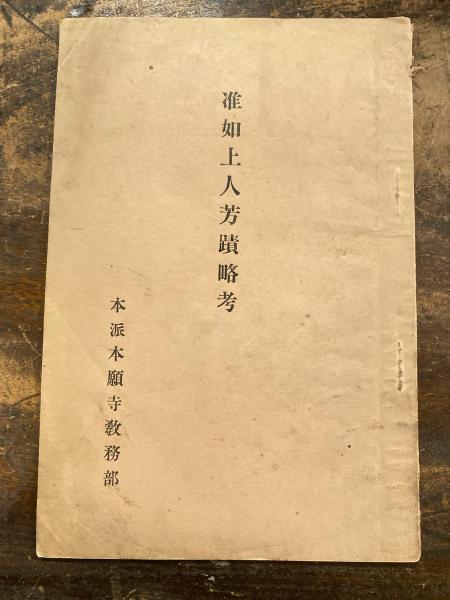 准如上人芳蹟略考
本派本願寺教務部